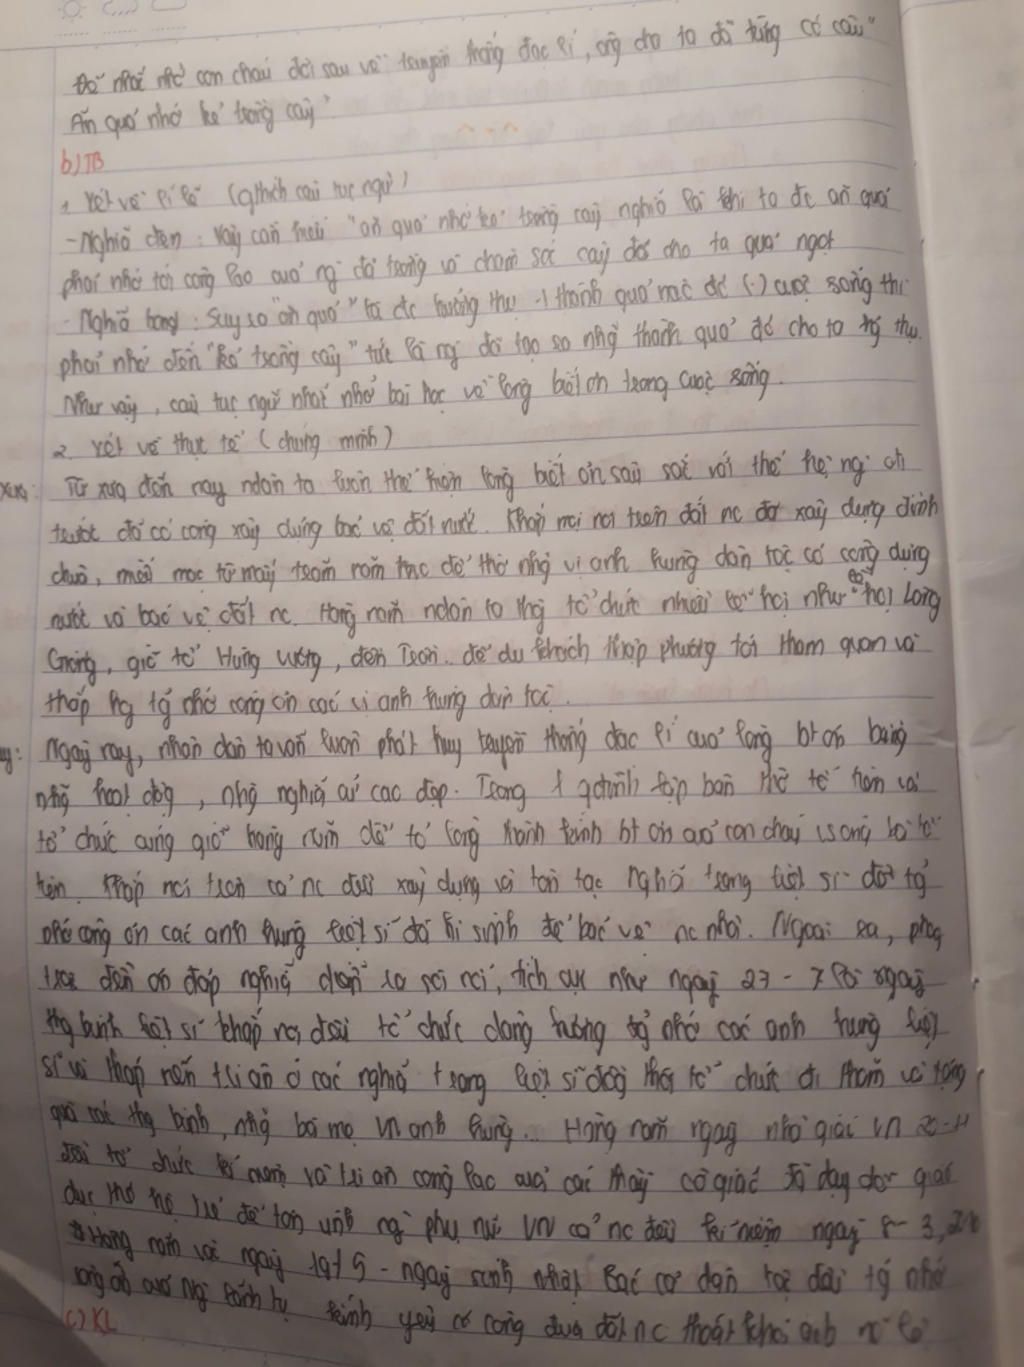 Để nhắc nhở con cháu đời sau về truyền thống đạo lí, ông cha ta đã từng có câu "
Ăn quả nhớ kẻ trồng cây"
b) TB
1. Xét về lí lẽ (gthích câu tục ngữ)
- Nghĩa đen: Vậy cần hiểu "ăn quả nhớ kẻ trồng cây nghĩa là khi ta đc ăn quả
phải nhớ tới công lao của ng đã trồng và chăm sóc cây đó cho ta quả ngọt
- Nghĩa bóng: Suy ra "ăn quả" là đc hưởng thụ 1 thành quả nào đó (.) cuộc sống thì
phải nhớ đến "kẻ trồng cây" tức là ng đã tạo ra nhg thành quả đó cho ta hg thụ.
Như vậy, câu tục ngữ nhắc nhở bài học về lòng biết ơn trong cuộc sống.
2. Xét về thực tế (chứng minh)
Xưa: Từ xưa đến nay ndân ta luôn thể hiện lòng biết ơn sâu sắc với thế hệ ng đi
trước đã có công xây dựng bảo vệ đất nước. Khắp mọi nơi trên đất nc đã xây dựng đình
chùa, miếu mạc từ mấy trăm năm trc để thờ nhg vị anh hùng dân tộc có công dựng
nước và bảo vệ đất nc. Hàng năm ndân ta thg tổ chức nhiều lễ hội như lễ hội Lòng
Gióng, giỗ tổ Hùng Vương, đền Trần.. để du khách thập phương tới tham quan và
thắp hg tg nhớ công ơn các vị anh hùng dân tộc.
Ngày nay, nhân dân ta vẫn luôn phát huy truyền thống đạo lí của lòng bt ơn bằng
nhg hoạt độg, nhg nghĩa cử cao đẹp. Trong 1 gđình lập bàn thờ tổ tiên và
tổ chức cúng giỗ hàng năm để tỏ lòng thành kính bt ơn của con cháu vs ông bà tổ
tiên. Khắp nơi trên cả nc đều xây dựng và tôn tạo nghĩa trang liệt sĩ để tg
nhớ công ơn các anh hùng liệt sĩ đã hi sinh để bảo vệ nc nhà. Ngoài ra, phog
trào đền ơn đáp nghĩa diễn ra sôi nổi, tích cực như ngày 27 - 7 là ngày
thg binh liệt sĩ khắp nơi đều tổ chức dâng hương tg nhớ các anh hùng liệt
sĩ và thắp nến tri ân ở các nghĩa trang liệt sĩ đồng thời tổ chức đi thăm và tặng
quà các thg binh, nhg bà mẹ VN anh hùng.. Hàng năm ngày nhà giáo VN 20-11
đều tổ chức kỉ niệm và tri ân công lao của các thầy cô giáo đã dạy dỗ giáo
dục thế hệ trẻ để tôn vinh ng phụ nữ VN cả nc đều kỉ niệm ngày 8-3,
Hàng năm vào ngày 19/5 - ngày sinh nhật Bác cả dân tộc đều tg nhớ
công ơn của Ng lãnh tụ kính yêu có công đưa đất nc thoát khỏi ách nô lệ
c) KL